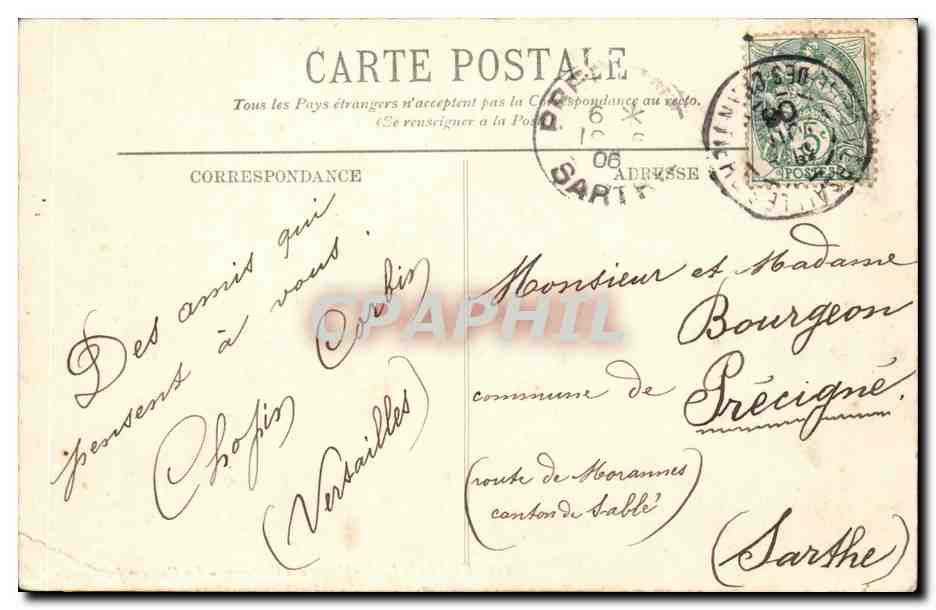 CARTE POSTALE
Tous les Pays étrangers n'acceptent pas la Correspondance au recto.
(Se renseigner a la Poste
CORRESPONDANCE
ADRESSE
6
06
SARTHE
5
POSTES
Des amis qui
pensent à vous.
Chopin Corbin
(Versailles)
CPAPHIL
Monsieur et Madame
Bourgeon
commune de Précigné.
(route de Morannes
canton de Sablé)
(Sarthe)